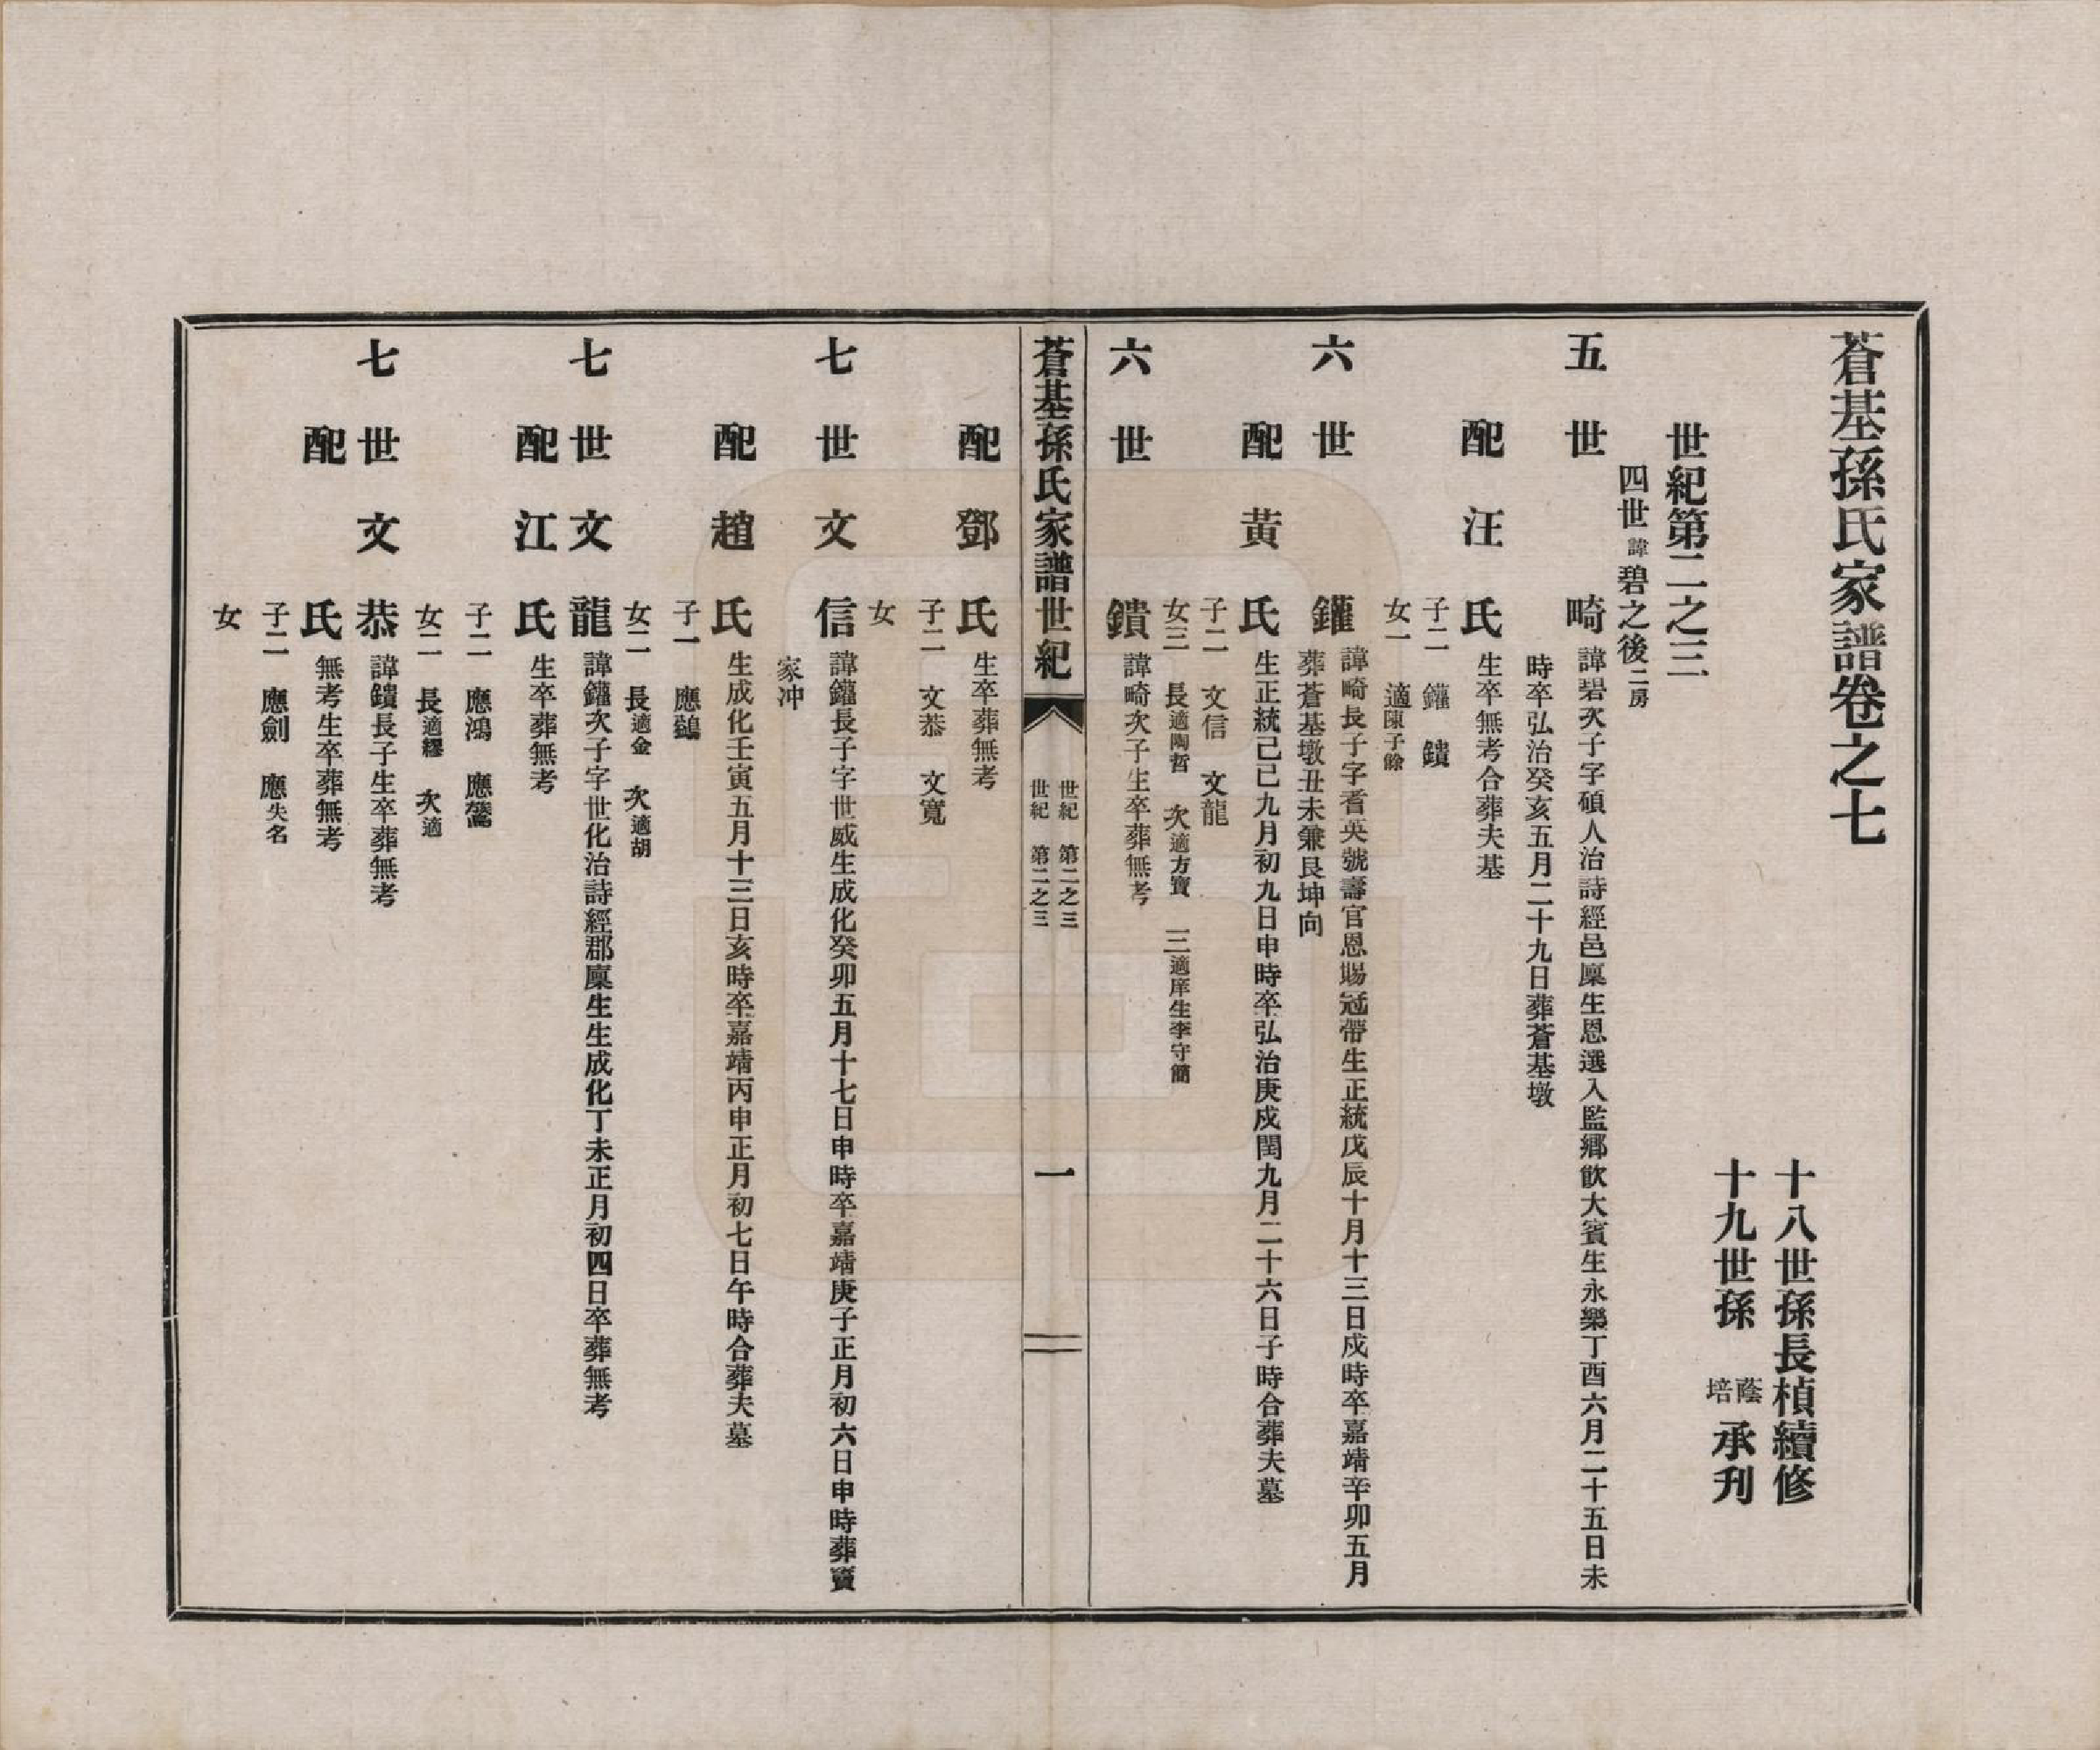 蒼基孫氏家譜卷之七
十八世孫長楨續修
十九世孫 蔭培 承刋
世紀第二之三
四世諱碧之後二房
五世 畸 諱碧次子字碩人治詩經邑廩生恩選入監鄉飲大賓生永樂丁酉六月二十五日未
時卒弘治癸亥五月二十九日葬蒼基墩
配汪氏 生卒無考合葬夫基
子二 鑵 鐀
女一 適陳子餘
六世 鑵 諱畸長子字耆英號壽官恩賜冠帶生正統戊辰十月十三日戌時卒嘉靖辛卯五月
葬蒼基墩丑未兼艮坤向
配黃氏 生正統己巳九月初九日申時卒弘治庚戌閏九月二十六日子時合葬夫墓
子二 文信 文龍
女三 長適陶哲 次適方寶 三適庠生李守簡
六世 鐀 諱畸次子生卒葬無考
蒼基孫氏家譜世紀
世紀 第二之三
世紀 第二之三
一
配鄧氏 生卒葬無考
子二 文恭 文寬
女
七世文信 諱鑵長子字世威生成化癸卯五月十七日申時卒嘉靖庚子正月初六日申時葬竇
家冲
配趙氏 生成化壬寅五月十三日亥時卒嘉靖丙申正月初七日午時合葬夫墓
子一 應鷄
女二 長適金 次適胡
七世文龍 諱鑵次子字世化治詩經郡廩生生成化丁未正月初四日卒葬無考
配江氏 生卒葬無考
子二 應鴻 應鸑
女二 長適繆 次適
七世文恭 諱鐀長子生卒葬無考
配 氏 無考生卒葬無考
子二 應劍 應失名
女